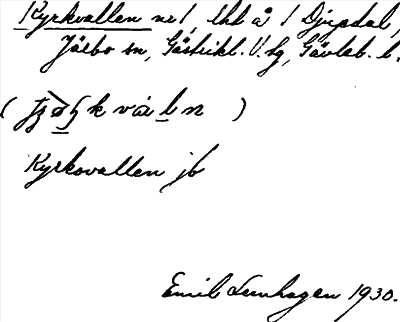 Kyrkvallen nr 1, lht å 1 Djupdal,
Järbo sn, Gästrikl. V. hg, Gävleb. l.
Kyrkovallen jb
Emil Lernhagen 1930.